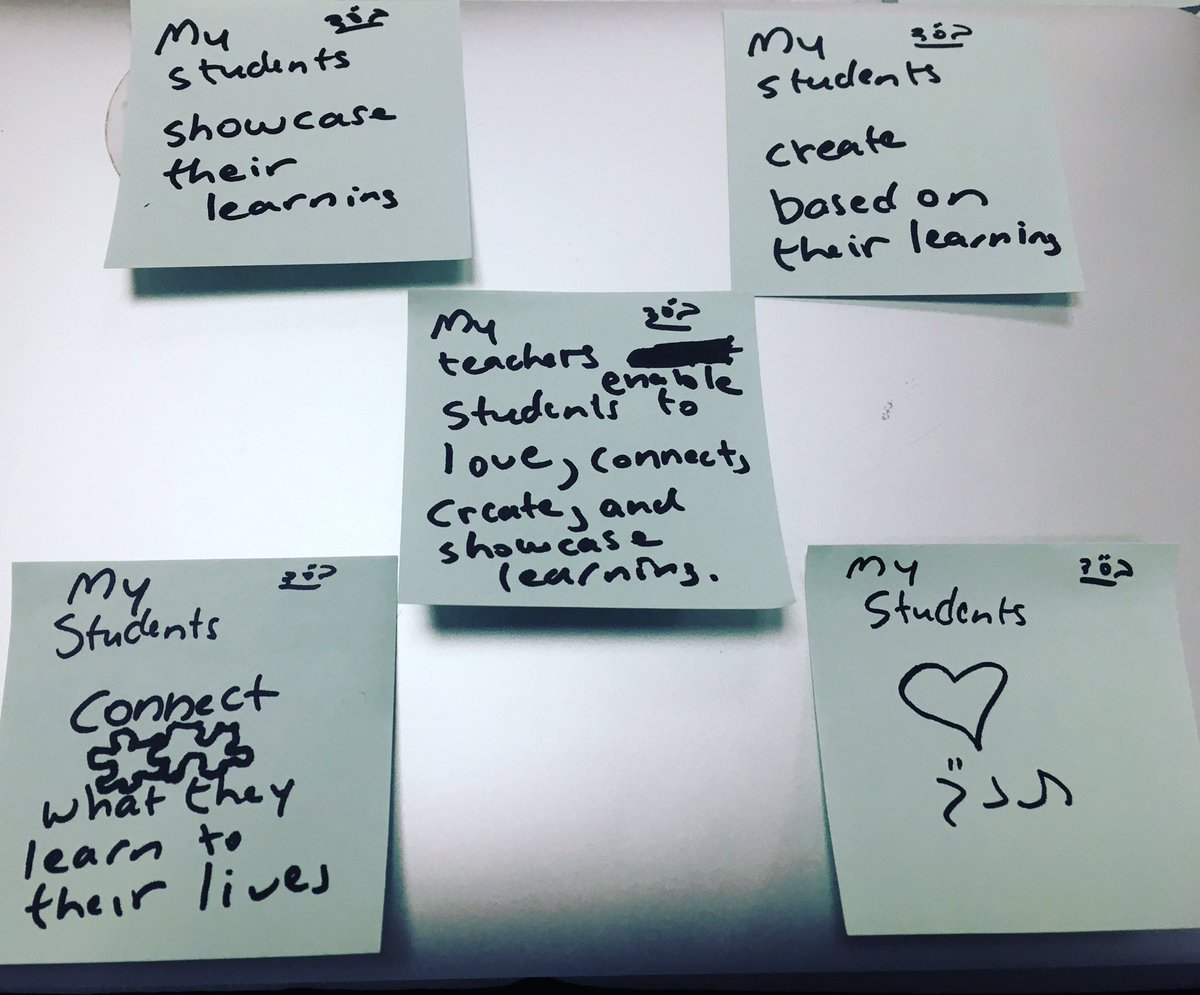 My
students
showcase
their
learning
My
students
create
based on
their learning
My
teachers
enable
students to
love, connect,
create, and
showcase
learning.
My
Students
Connect
what they
learn to
their lives
My
Students